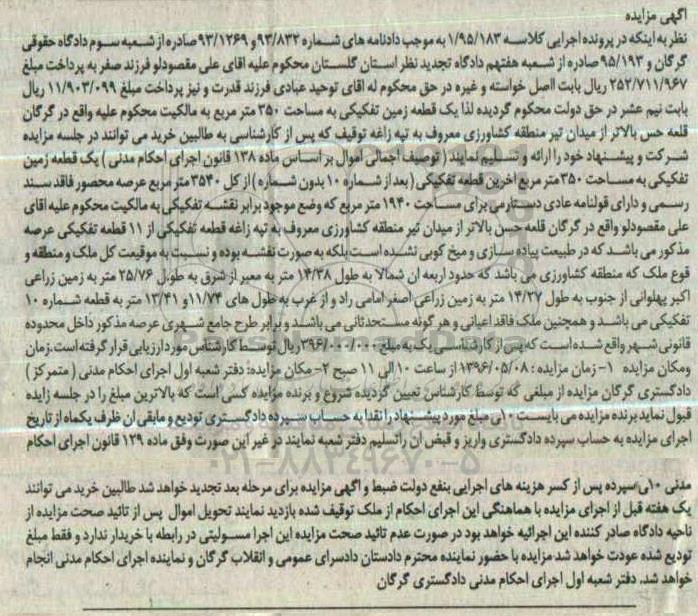 آگهی مزایده
نظر به اینکه در پرونده اجرایی کلاسه ۱/۹۵/۱۸۳ به موجب دادنامه های شماره ۹۳/۸۳۲ و ۹۳/۱۲۶۹ صادره از شعبه سوم دادگاه حقوقی
گرگان و ۹۵/۱۹۳ صادره از شعبه هفتهم دادگاه تجدید نظر استان گلستان محکوم علیه اقای علی مقصودلو فرزند صفر به پرداخت مبلغ
۲۵۲/۷۱۱/۹۶۷ ریال بابت ااصل خواسته و غیره در حق محکوم له اقای توحید عبادی فرزند قدرت و نیز پرداخت مبلغ ۱۱/۹۰۳/۰۹۹ ریال
بابت نیم عشر در حق دولت محکوم گردیده لذا یک قطعه زمین تفکیکی به مساحت ۳۵۰ متر مربع به مالکیت محکوم علیه واقع در گرگان
قلعه حس بالاتر از میدان تیر منطقه کشاورزی معروف به تپه زاغه توقیف که پس از کارشناسی به طالبین خرید می توانند در جلسه مزایده
شرکت و پیشنهاد خود را ارائه و تسلیم نمایند ( توصیف اجمالی اموال بر اساس ماده ۱۳۸ قانون اجرای احکام مدنی ) یک قطعه زمین
تفکیکی به مساحت ۳۵۰ متر مربع اخرین قطعه تفکیکی ( بعد از شماره ۱۰ بدون شماره ) از کل ۳۵۴۰ متر مربع عرصه محصور فاقد سند
رسمی و دارای قولنامه عادی دستارمی برای مساحت ۱۹۴۰ متر مربع که وضع موجود برابر نقشه تفکیکی به مالکیت محکوم علیه اقای
علی مقصودلو واقع در گرگان قلعه حسن بالاتر از میدان تیر منطقه کشاورزی معروف به تپه زاغه قطعه تفکیکی از ۱۱ قطعه تفکیکی عرصه
مذکور می باشد که در طبیعت پیاده سازی و میخ کوبی نشده است بلکه به صورت نقشه بوده و نسبت به موقیعت کل ملک و منطقه و
قوع ملک که منطقه کشاورزی می باشد که حدود اربعه ان شمالا به طول ۱۴/۳۸ متر به معبر از شرق به طول ۲۵/۷۶ متر به زمین زراعی
اکبر پهلوانی از جنوب به طول ۱۴/۲۷ متر به زمین زراعی اصغر امامی راد و از غرب به طول های ۱۱/۷۴ و ۱۳/۴۱ متر به قطعه شماره ۱۰
تفکیکی می باشد و همچنین ملک فاقد اعیانی و هر گونه مستحدثاتی می باشد و برابر طرح جامع شهری عرصه مذکور داخل محدوده
قانونی شهر واقع شده است که پس از کارشناسی یک به مبلغ ۳۹۶/۰۰۰/۰۰۰ ریال توسط کارشناس مورد ارزیابی قرار گرفته است. زمان
ومکان مزایده ۱- زمان مزایده : ۱۳۹۶/۰۵/۰۸ از ساعت ۱۰ الی ۱۱ صبح ۲- مکان مزایده: دفتر شعبه اول اجرای احکام مدنی ( متمرکز )
دادگستری گرگان مزایده از مبلغی که توسط کارشناس تعیین گردیده شروع و برنده مزایده کسی است که بالاترین مبلغ را در جلسه زایده
قبول نماید برنده مزایده می بایست ۱۰٪ مبلغ مورد پیشنهاد را نقدا به حساب سپرده دادگستری تودیع و مابقی ان ظرف یکماه از تاریخ
اجرای مزایده به حساب سپرده دادگستری واریز و قبض ان راتسلیم دفتر شعبه نمایند در غیر این صورت وفق ماده ۱۲۹ قانون اجرای احکام
مدنی ۱۰٪ سپرده پس از کسر هزینه های اجرایی بنفع دولت ضبط و اگهی مزایده برای مرحله بعد تجدید خواهد شد طالبین خرید می توانند
یک هفته قبل از اجرای مزایده با هماهنگی این اجرای احکام از ملک توقیف شده بازدید نمایند تحویل اموال پس از تائید صحت مزایده از
ناحیه دادگاه صادر کننده این اجرائیه خواهد بود در صورت عدم تائید صحت مزایده این اجرا مسولیتی در رابطه با خریدار ندارد و فقط مبلغ
تودیع شده عودت خواهد شد مزایده با حضور نماینده محترم دادستان دادسرای عمومی و انقلاب گرگان و نماینده اجرای احکام مدنی انجام
خواهد شد. دفتر شعبه اول اجرای احکام مدنی دادگستری گرگان
۰۲۱-۸۸۳۴۹۶۷۰-۵